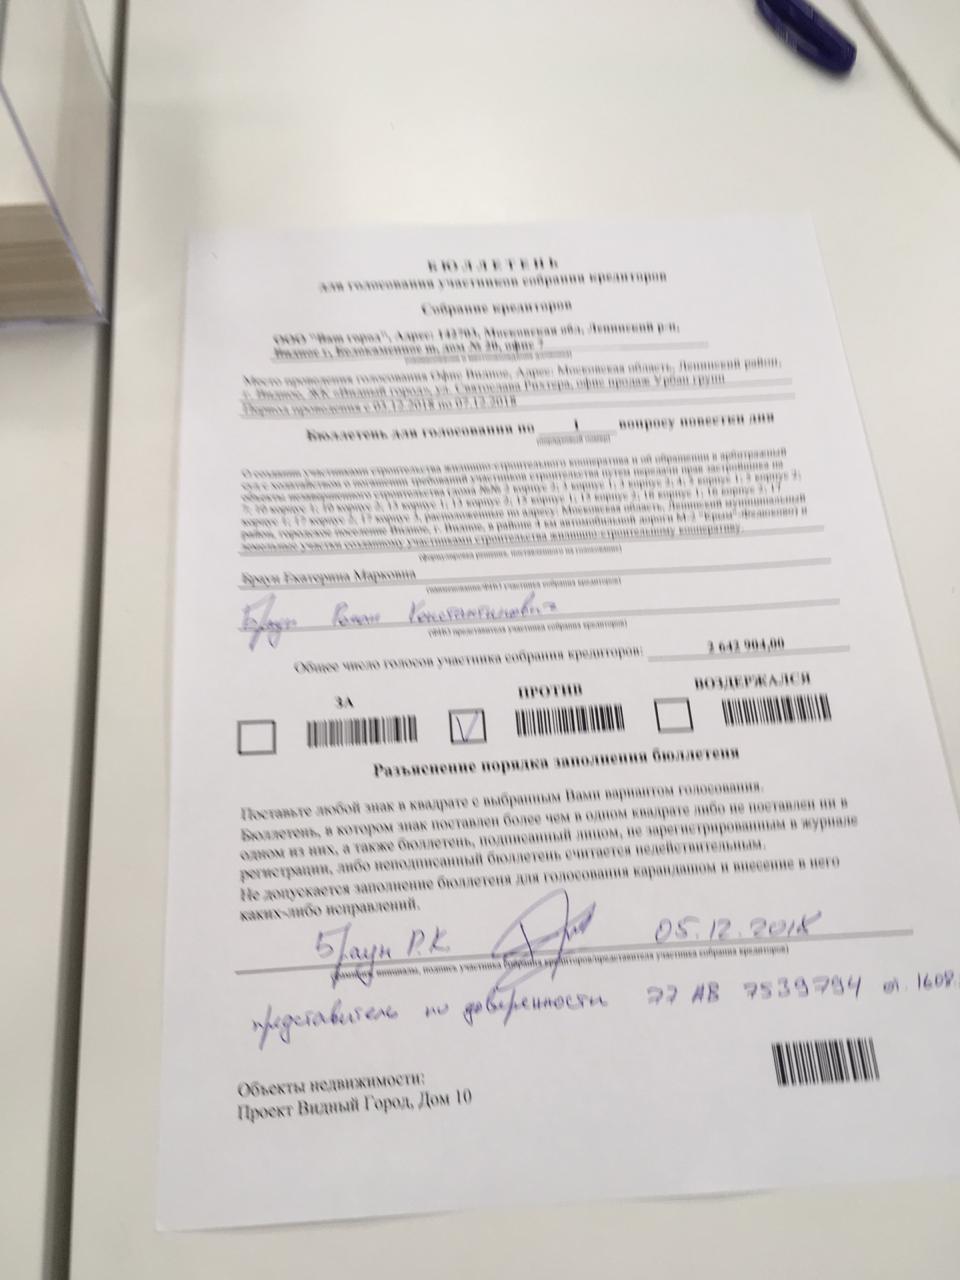 БЮЛЛЕТЕНЬ
для голосования участников собрания кредиторов
Собрание кредиторов
ООО "Ваш город", Адрес: 142703, Московская обл, Ленинский р-н,
Видное г, Белокаменное ш, дом № 20, офис 7
Место проведения голосования Офис Видное, Адрес: Московская область, Ленинский район,
г. Видное, ЖК «Видный город», ул. Святослава Рихтера, офис продаж Урбан групп
Период проведения с 03.12.2018 по 07.12.2018
Бюллетень для голосования по 1 вопросу повестки дня
(порядковый номер)
О создании участниками строительства жилищно-строительного кооператива и об обращении в арбитражный
суд с ходатайством о погашении требований участников строительства путем передачи прав застройщика на
объекты незавершенного строительства
район, городское поселение Видное, г. Видное, в районе 4 км автомобильной дороги М-2 "Крым"
земельные участки созданному участниками строительства жилищно-строительному кооперативу.
(формулировка решения, поставленного на голосование)
Браун Екатерина Марковна
(наименование/ФИО участника собрания кредиторов)
Браун Роман Константинович
(ФИО представителя участника собрания кредиторов)
Общее число голосов участника собрания кредиторов: 2 642 904,00
ЗА ПРОТИВ ВОЗДЕРЖАЛСЯ
Разъяснение порядка заполнения бюллетеня
Поставьте любой знак в квадрате с выбранным Вами вариантом голосования.
Бюллетень, в котором знак поставлен более чем в одном квадрате либо не поставлен ни в
одном из них, а также бюллетень, подписанный лицом, не зарегистрированным в журнале
регистрации, либо неподписанный бюллетень считается недействительным.
Не допускается заполнение бюллетеня для голосования карандашом и внесение в него
каких-либо исправлений.
Браун Р.К. 05.12.2018
(фамилия, инициалы, подпись участника собрания кредиторов/представителя участника собрания кредиторов)
представитель по доверенности 77 АВ 7539794 от. 1608.
Объекты недвижимости:
Проект Видный Город, Дом 10